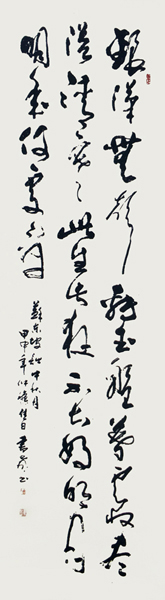 銀漢無聲轉玉盤暮雲收盡
溢清寒此生此夜不長好明月
明年何處看
蘇東坡 中秋月
甲申年仲 佳日